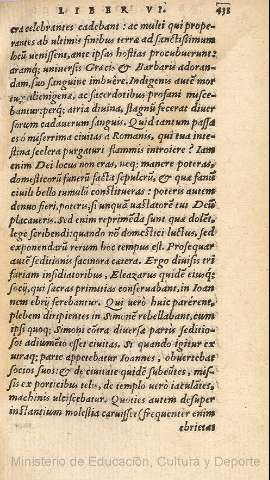 LIBER VI. 438
cra celebrantes cadebant: ac multi qui prope-
rantes ab ultimis finibus terræ ad sanctissimum
locũ venissent, ante ipsas hostias procubuerunt:
aramq; universis Græcis & Barbaris adoran-
dam, suo sanguine imbuêre. Indigenis autẽ mor
tuis alienigenæ, ac sacerdotibus profani misce-
bantur: perq; atria divina, stagnũ fecerat diver
sorum cadaverum sanguis. Quid tantum passa
es ô miserrima civitas à Romanis, qui tua inte-
stina scelera purgaturi flammis introiere? Iam
enim Dei locus non eras, neq; manere poteras,
domesticorũ funerũ facta sepulcrũ, & quæ fanũ
civili bello tumulũ constitueras: poteris autem
denuo fieri, poteris, si unquã vastatorẽ tui Deũ
placaveris. Sed enim reprimẽda sunt quæ dolẽt,
lege scribendi: quando nõ domestici luctus, sed
exponendarũ rerum hoc tempus est. Prosequar
autẽ seditionis facinora cætera. Ergo divisis tri
fariam insidiatoribus, Eleazarus quidẽ eiusq;
socij, qui sacras primitias conservabant, in Ioan
nem ebrij ferebantur. Qui verò huic parerent,
plebem diripientes in Simonẽ rebellabant, cum
ipsi quoq; Simoni cõtra diversæ partis seditio-
sos adiumẽto esset civitas. Si quando igitur ex
utraq; parte appetebatur Ioannes, obvertebat
socios suos: & de civitate quidẽ subeũtes, mis-
sis ex porticibus telis, de templo verò iaculãtes,
machinis ulciscebatur. Quoties autem desuper
instantium molestia caruisset (frequenter enim
ebrietas
Ministerio de Educación, Cultura y Deporte